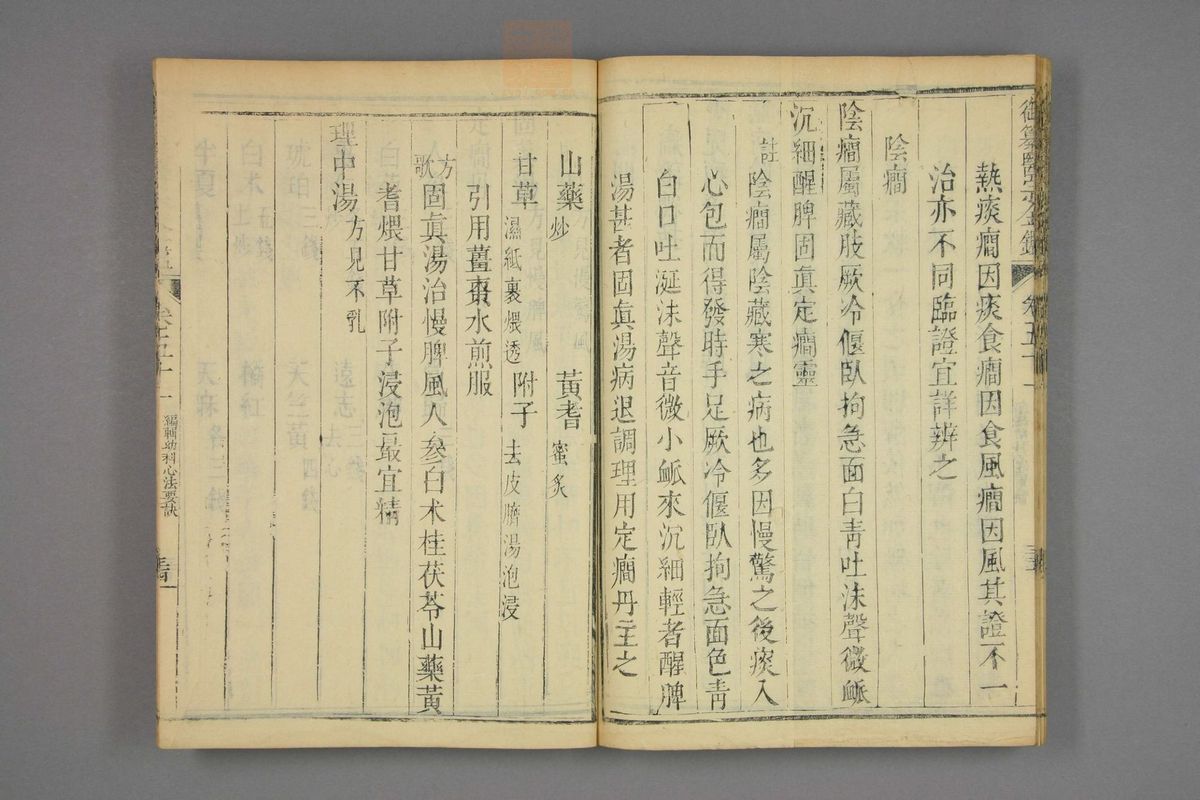 熱痰癎因痰食癎因食風癎因風其證不一
治亦不同臨證宜詳辨之
陰癎
陰癎屬藏肢厥冷偃臥拘急面白青吐沫聲微䘑
沉細醒脾固眞定癎靈
註陰癎屬陰藏寒之病也多因慢驚之後痰入
心包而得發時手足厥冷偃臥拘急面色青
白口吐涎沫聲音微小䘑來沉細輕者醒脾
湯甚者固眞湯病退調理用定癎丹主之
山藥炒 黃耆蜜炙
甘草濕紙裏煨透 附子去皮臍湯泡浸
引用薑棗水煎服
方歌固眞湯治慢脾風人參白术桂茯苓山藥黃
耆煨甘草附子浸泡最宜精
理中湯方見不乳
編輯幼科心法要訣